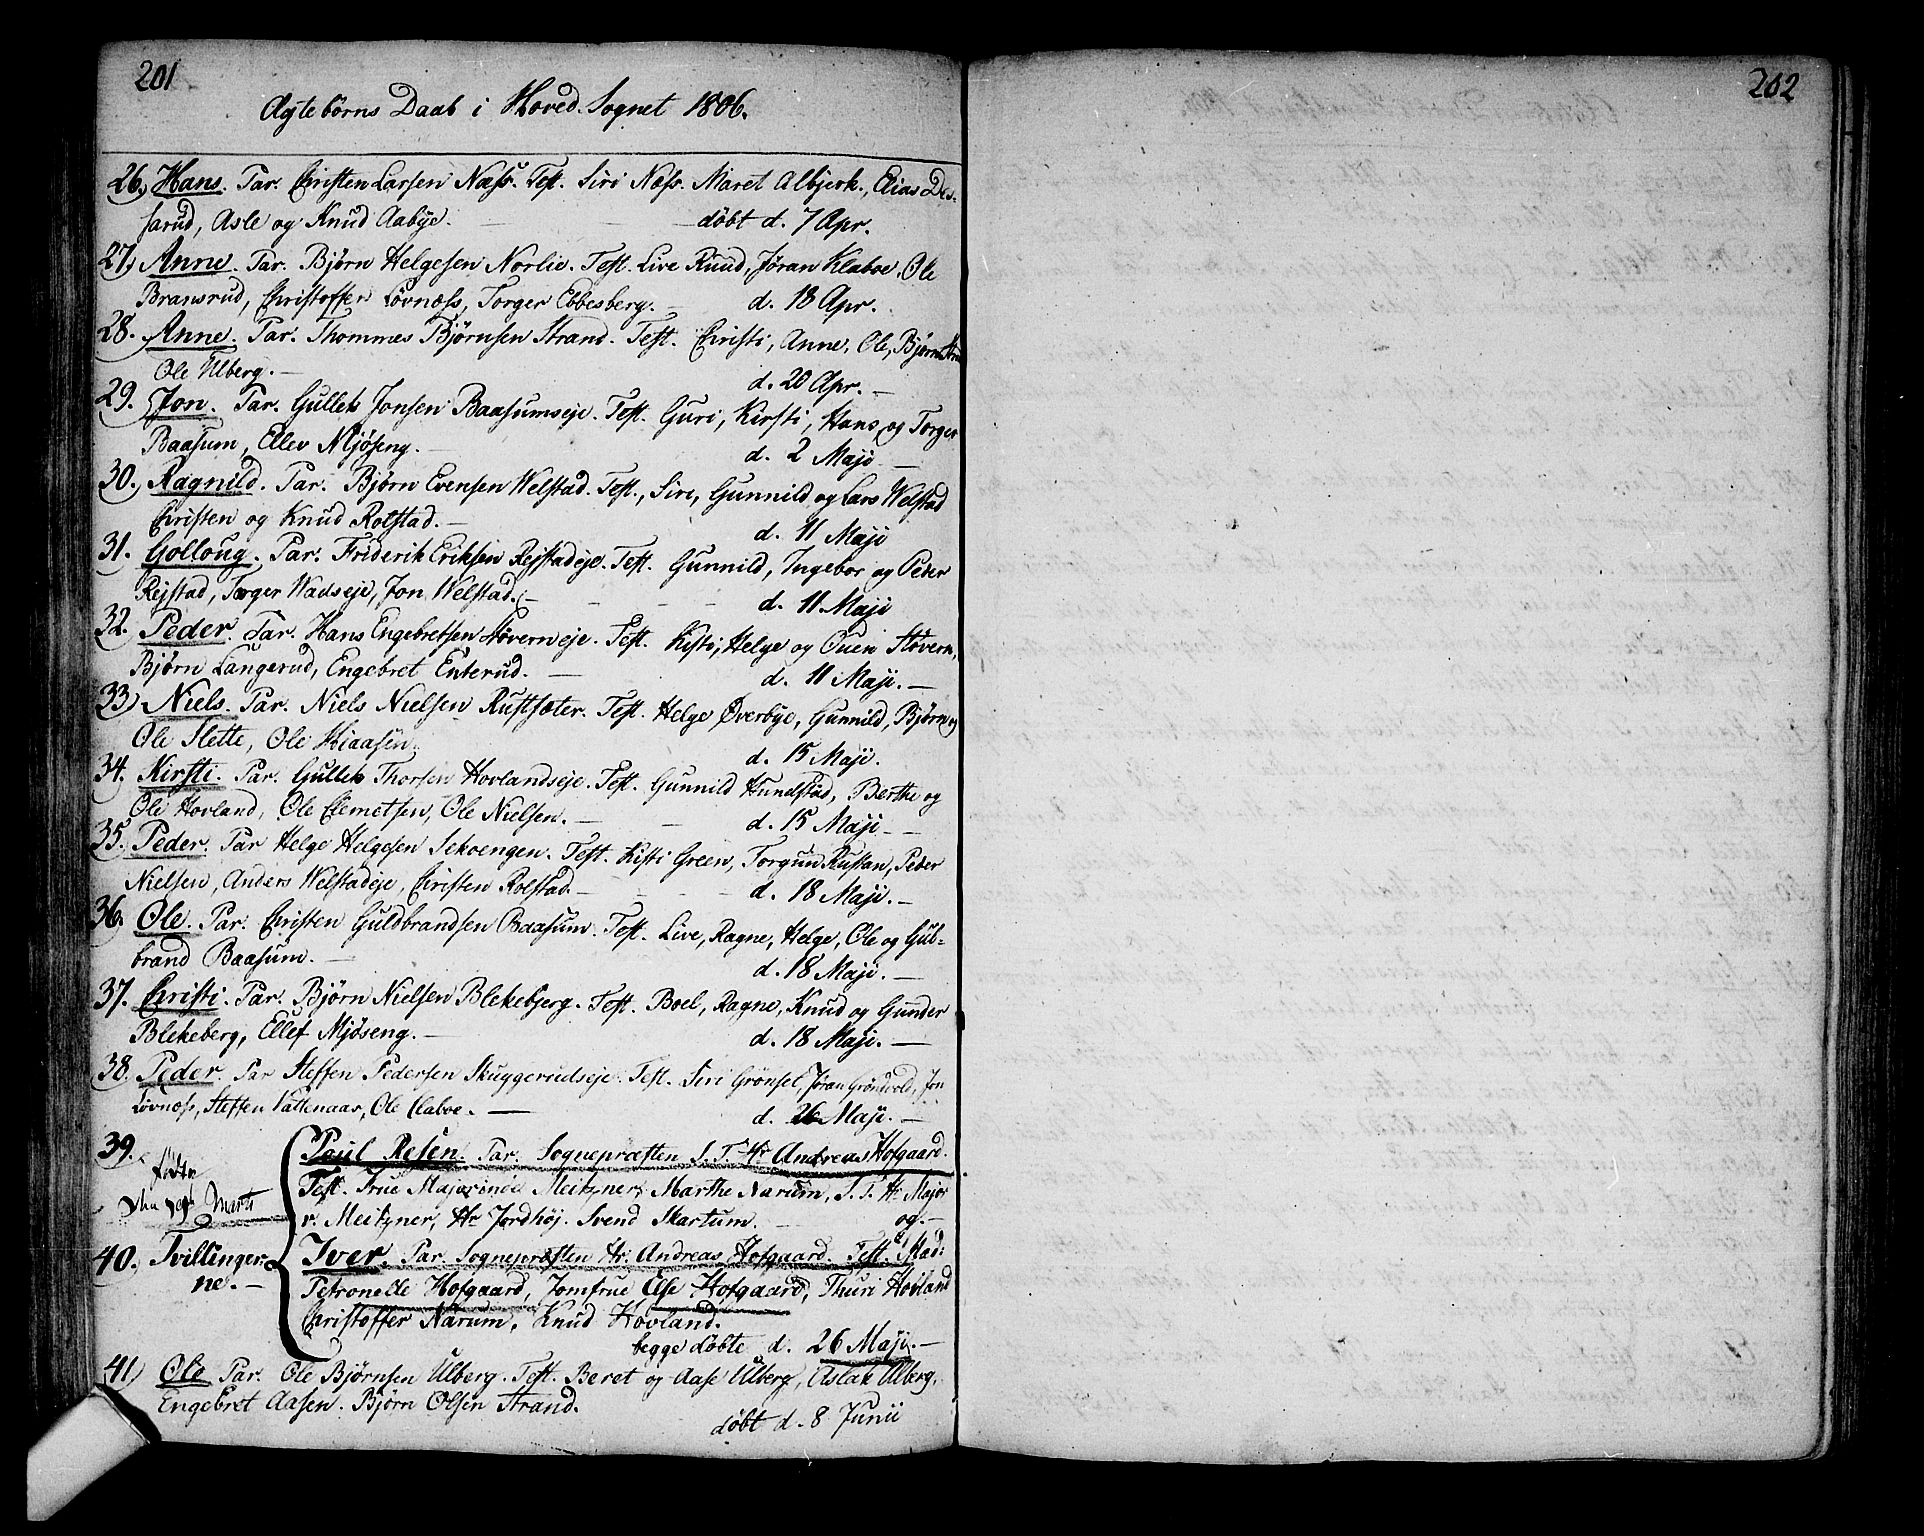 201
Ægtebörns Daab i Hoved-Sognet 1806.
26.) Hans. Par. Christen Larsen Næss. Test. Siri Næss. Maret Albjerk., Elias Des-
sarud, Asle og Knud Aabye. — döbt d. 7 Apr.
27.) Anne. Par. Bjørn Helgesen Norlie. Test. Live Ruud, Jøran Klaboe, Ole
Bransrud, Christoffer Løvnæss, Torger Ebbesberg. — d. 18 Apr.
28. Anne. Par. Thommes Bjørnsen Strand. Test. Christi, Anne, Ole, Bjørn
Ole Ulberg. — d. 20 Apr. —
29. Jon. Par. Gullek Jonsen Baasumseje. Test. Guri, Kirsti, Hans og Torger
Baasum, Ellev Mjöseng. — d. 2 Maji —
30.) Ragnild. Par. Bjørn Evensen Welstad. Test., Siri, Gunnild og Lars Welstad
Christen og Knud Rolstad. — d. 11 Maji
31. Gollaug. Par. Friderik Eriksen Rejstadeje. Test. Gunnild, Ingebor og Peder
Rejstad, Torger Wadseje, Jon Welstad. — d. 11 Maji
32. Peder. Par. Hans Engebretsen Støverneje. Test. Kisti, Helge og Ouen Støvern,
Bjørn Langerud, Engebret Enterud. — d. 11 Maji. —
33) Niels. Par. Niels Nielsen Rustsæter. Test. Helge Øverbye, Gunnild, Bjørn og
Ole Slette, Ole Hiaasen. d. 15 Maji.
34. Kirsti. Par. Gullek Thorsen Hovlandseje. Test. Gunnild Hundstad, Berthe og
Ole Hovland, Ole Clemetsen, Ole Nielsen. — d. 15 Maji —
35. Peder. Par Helge Helgesen Sekoengen. Test. Kisti Green, Torgun Russan, Peder
Nielsen, Anders Welstadeje, Christen Rolstad. — d. 18 Maji. —
36. Ole. Par. Christen Guldbrandsen Baasum. Test. Live, Ragne, Helge, Ole og Gul-
brand Baasum. — d. 18 Maji. —
37. Christi. Par. Bjørn Nielsen Blekebjerg. Test. Boel, Ragne, Knud og Gunder
Blekeberg, Ellef Mjöseng. — d. 18 Maji. —
38. Peder. Par Steffen Pedersen Skuggerudseje. Test. Siri Grönset, Jöran Grönvold, Jon
Løvnæss, Steffen Vattenaas, Ole Claboe. — d. 26 Maji. —
39. Poul Resen. Par. Sognepræsten S. T. Hr Andreas Hofgaard.
födte
Marti
Test. Frue Majorinde Meitzner, Marthe Narum, S. T. Hr Major
v. Meitzner, Hr Jordhöj. Svend Skartum. og. —
40. Tvillinger-
ne. —
Iver. Par. Sognepræsten Hr. Andreas Hofgaard. Test. Mad:
Petronelle Hofgaard, Jomfrue Else Hofgaard, Thuri Hovland
Christoffer Narum, Knud Hovland.
begge döbte d. 26 Maji. —
41) Ole Par. Ole Bjørnsen Ulberg. Test. Beret og Aase Ulberg, Aslak Ulberg,
Engebret Aasen. Bjørn Olsen Strand.
döbt d. 8 Junii
202